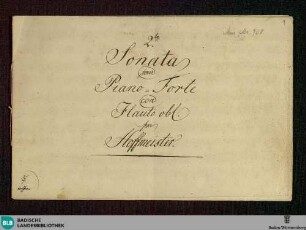 2.
Sonata
Piano-Forte
con
Flauto obl:
per
Hoffmeister.
BLB
BADISCHE
LANDESBIBLIOTHEK